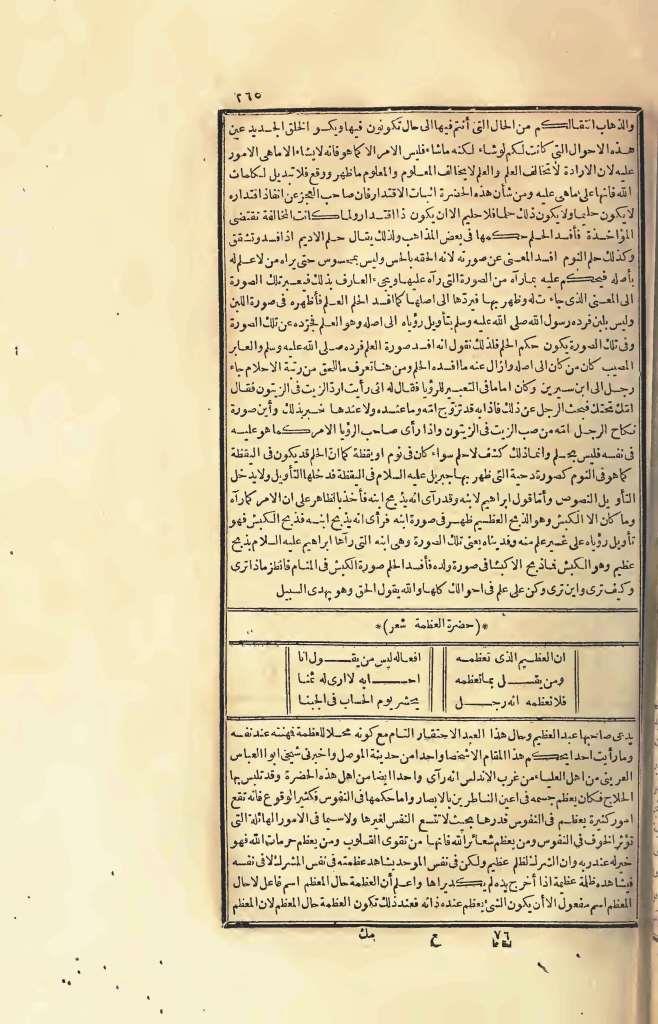 ٢٦٥
والذهاب انتقالكم من الحال التي أنتم فيها الى حال تكونون فيها ويكسو الخلق الجديد عين
هذه الاحوال التي كانت لكم لوشاء لكنه ماشاء فليس الامر الا كما هو فانه لا يشاء الا ماهي الامور
عليه لان الارادة لا تخالف العلم والعلم لا يخالف المعلوم والمعلوم ما ظهر ووقع فلا تبديل لكلمات
الله فانها على ماهي عليه ومن شأن هذه الحضرة اثبات الاقتدار فان صاحب العجز عن انفاذ اقتداره
لا يكون حليما ولا يكون ذلك حلما فلا حليم الا ان يكون ذا اقتدار ولما كانت المخالفة تقتضي
المؤاخذة فأفسد الحلم حكمها في بعض المذاهب ولذلك يقال حلم الاديم اذا فسد وتشقق
وكذلك حلم النوم افسد المعنى عن صورته لانه الحقه بالحس وليس بمحسوس حتى يراه من لا علم له
بأصله فيحكم عليه بما رآه من الصورة التي رآه عليها ويجيء العارف بذلك فيعبر تلك الصورة
الى المعنى الذي جاءت له وظهر بها فيردها الى اصلها كما افسد الحلم العلم فأظهره في صورة اللبن
وليس بلبن فرده رسول الله صلى الله عليه وسلم بتأويل رؤياه الى اصله وهو العلم فجرده عن تلك الصورة
وفي تلك الصورة يكون حكم الحلم فلذلك نقول انه افسد صورة العلم فرده صلى الله عليه وسلم والعابر
المصيب كان من كان الى اصله وازال عنه ما افسده الحلم ومن هنا تعرف ما للحق من رتبة الاحلام جاء
رجل الى ابن سيرين وكان اماما في التعبير للرؤيا فقال له اني رأيت ارد الزيت في الزيتون فقال
امك تحتك فبحث الرجل عن ذلك فاذا به قد تزوج امه وما عنده ولا عندها خبر بذلك وأين صورة
نكاح الرجل امه من صب الزيت في الزيتون واذا رأى صاحب الرؤيا الامر كما هو عليه
في نفسه فليس بحلم وانما ذلك كشف لا حلم سواء كان في نوم او يقظة كما انّ الحلم قد يكون في اليقظة
كما هو في النوم كصورة دحية التي ظهر بها جبريل عليه السلام في اليقظة فدخلها التأويل ولا يدخل
التأويل النصوص وأمّا قول ابراهيم لابنه وقد رأى انه يذبح ابنه فأخذ بالظاهر على ان الامر كما رآه
وما كان الا الكبش وهو الذبح العظيم ظهر في صورة ابنه فرأى انه يذبح ابنه فذبح الكبش فهو
تأويل رؤياه على غير علم منه وفديناه يعني تلك الصورة وهي ابنه التي رآها ابراهيم عليه السلام بذبح
عظيم وهو الكبش فما ذبح الا كبشا في صورة ولده فأفسد الحلم صورة الكبش في المنام فانظر ماذا ترى
وكيف ترى واين ترى وكن على علم في احوالك كلها والله يقول الحق وهو يهدي السبيل
*(حضرة العظمة شعر)*
ان العظيم الذي تعظمه افعاله ليس من يقول انا
ومن يقل بما تعظمه احسابه لا ارى له ثمنا
فلا تعظمه انه رجل يحشر يوم الحساب في الجبنا
يدعى صاحبها عبد العظيم وحال هذا العبد الاحتقار التام مع كونه محلا للعظمة فهنته عند نفسه
وما رأيت احدا يحكم هذا المقام الا شخصا واحدا من حديثة الموصل واخبرني شيخي ابو العباس
العريني من اهل العلياء من غرب الاندلس انه رأى واحدا ايضا من اهل هذه الحضرة وقد تلبس بها
الحلاج فكان يعظم جسمه في اعين الناظرين بالابصار واما حكمها في النفوس فكثير الوقوع فانه تقع
امور كثيرة يعظم في النفوس قدرها بحيث لا تتسع النفس لغيرها ولا سيما في الامور الهائلة التي
تؤثر الخوف في النفوس ومن يعظم شعائر الله فانها من تقوى القلوب ومن يعظم حرمات الله فهو
خير له عند ربه وان الشرك لظلم عظيم ولكن في نفس الموحد يشاهد عظمته في نفس المشرك لا في نفسه
فيشاهده ظلمة عظيمة اذا أخرج يده لم يكد يراها واعلم أن العظمة حال المعظم اسم فاعل لا حال
المعظم اسم مفعول الا أن يكون الشئ يعظم عنده ذاته فعند ذلك تكون العظمة حال المعظم لان المعظم
٧٦